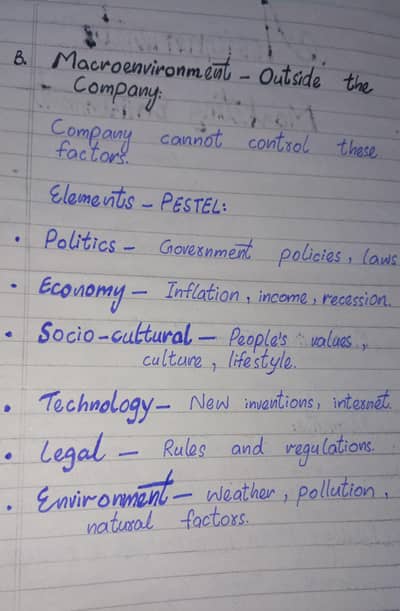 B. Macroenvironment - Outside the
- Company:
Company cannot control these
factors.
Elements - PESTEL:
• Politics - Government policies, laws
• Economy - Inflation, income, recession.
• Socio-cultural - People's values,
culture, lifestyle.
• Technology - New inventions, internet.
• Legal - Rules and regulations.
• Environment - Weather, pollution,
natural factors.